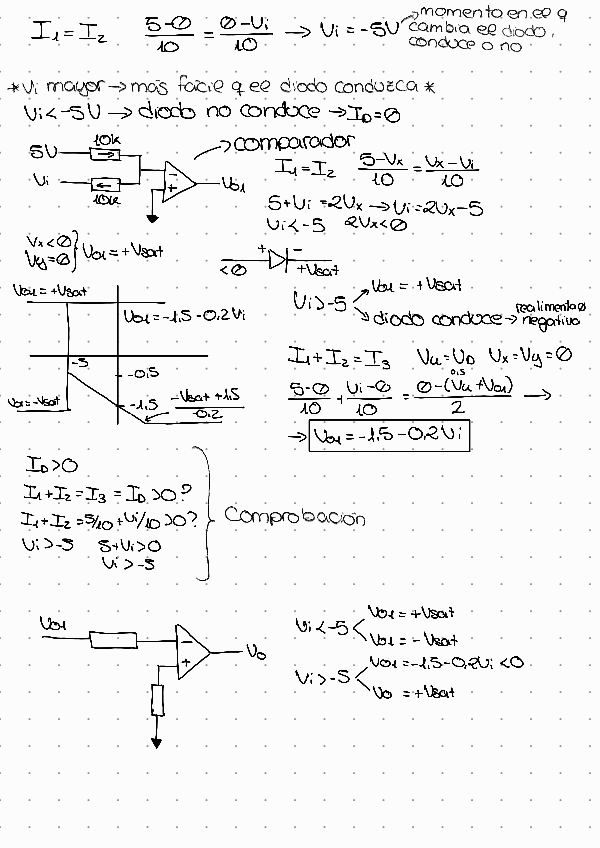 I₁ = I₂   (5-0)/10 = (0-Vi)/10 → Vi = -5V → momento en el q
cambia el diodo,
conduce o no
* Vi mayor → más fácil q el diodo conduzca *
Vi < -5V → diodo no conduce → I_D = 0
5V 10k → comparador
Vi 10k - + Vo1
I₁ = I₂   (5-Vx)/10 = (Vx-Vi)/10
5+Vi = 2Vx → Vi = 2Vx-5
Vi < -5   2Vx < 0
Vx < 0
Vy = 0 } Vo1 = +Vsat
<0 + - +Vsat
Vo1 = +Vsat
Vo1 = -1,5-0,2Vi
-5
-0,5
-1,5
Vo1 = -Vsat
(-Vsat+1,5)/0,2
Vi > -5
Vo1 = +Vsat
diodo conduce → realimentaø
negativo
I₁ + I₂ = I₃   Vu = V_D 0,5   Vx = Vy = 0
(5-0)/10 + (Vi-0)/10 = (0-(Vu+Vo1))/2 →
→ Vo1 = -1,5-0,2Vi
I_D > 0
I₁ + I₂ = I₃ = I_D > 0?
I₁ + I₂ = 5/10 + Vi/10 > 0?
Vi > -5   5+Vi > 0
Vi > -5
Comprobación
Vo1 - + Vo
Vi < -5
Vo1 = +Vsat
Vo1 = -Vsat
Vi > -5
Vo1 = -1,5-0,2Vi < 0
Vo = +Vsat